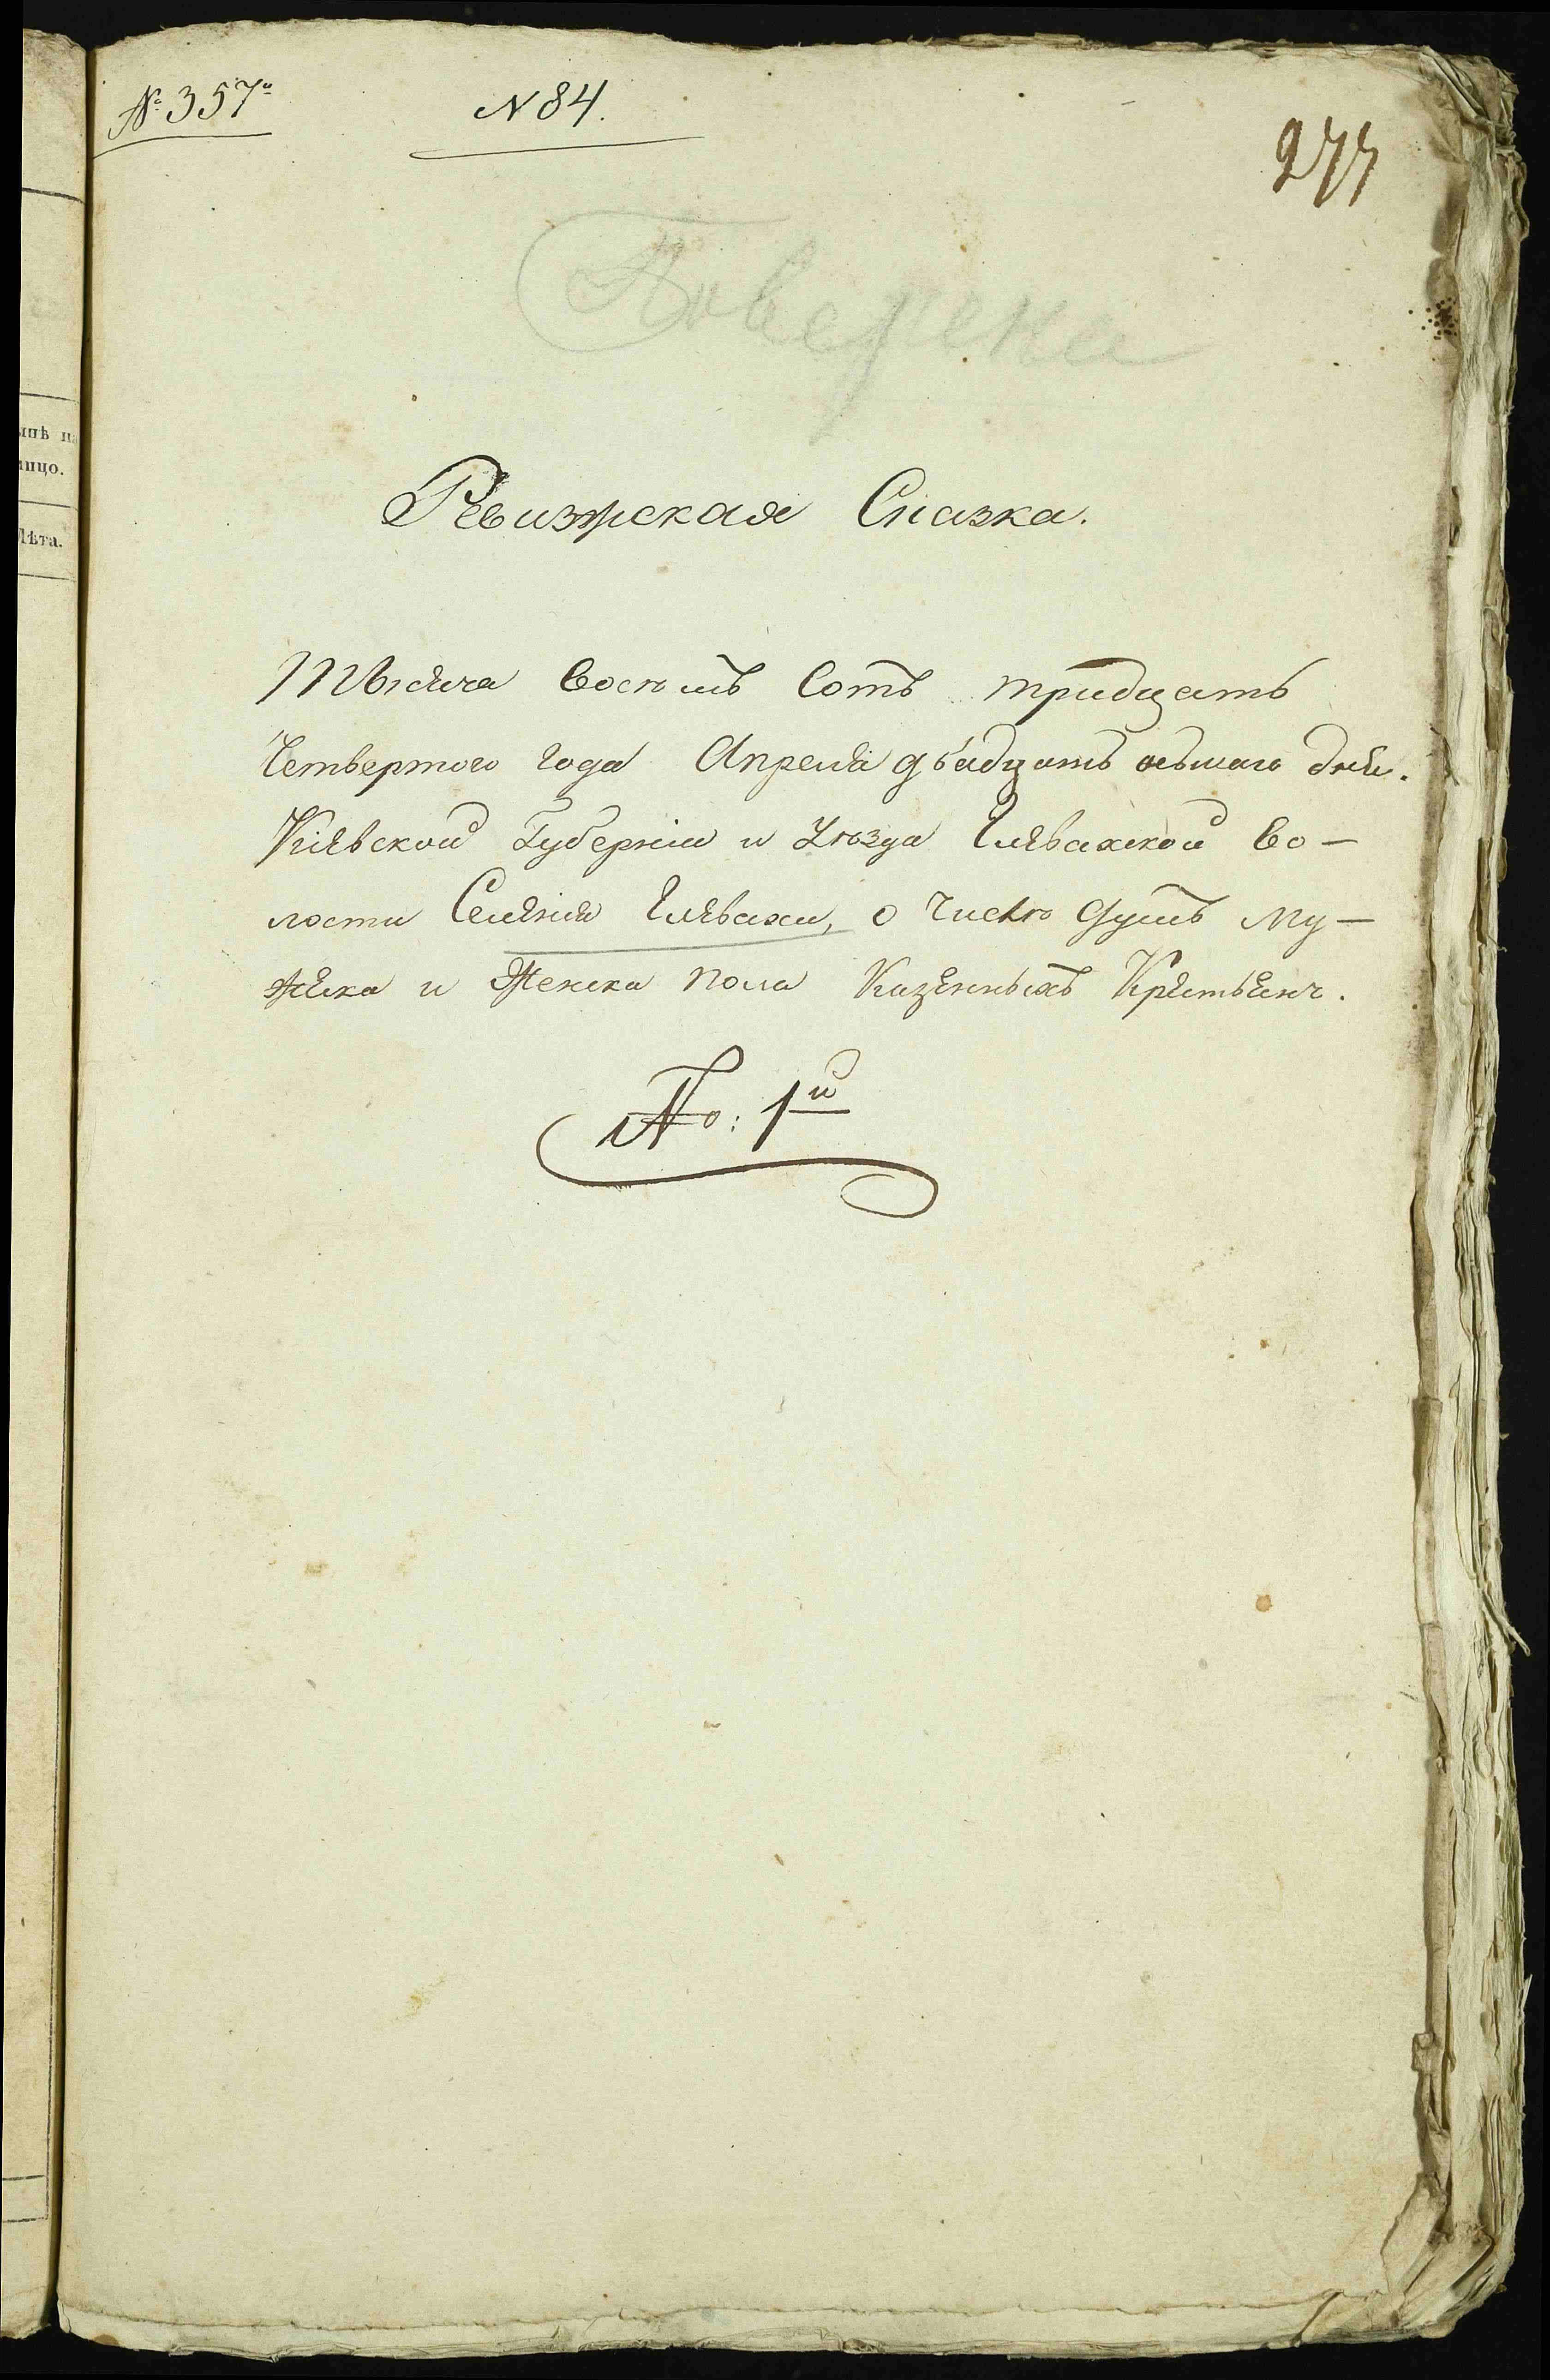 № 357й
N 84.
277
Поверена
Ревизская Сказка.
Тысяча восемъ Сотъ тридцать
Четвертого года Апреля двадцать осьмаго дня.
Кіевской Губерніи и Уезда Глевахской во-
лости Селенія Глевахи, о Числе душъ му-
жеска и Женска пола Казенныхъ Крестьянъ.
По: 1й
нѣ на
лицо.
Лѣта.